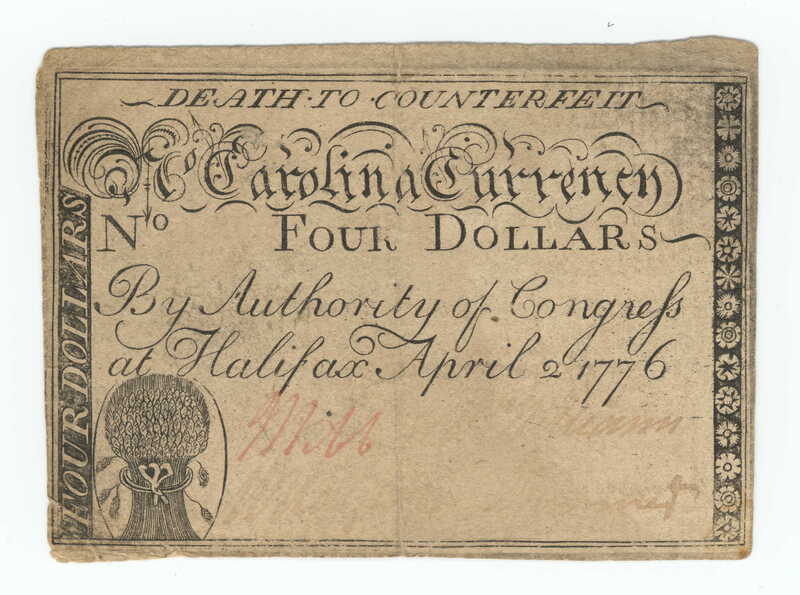 DEATH·TO·COUNTERFEIT
No Carolina Currency
No FOUR DOLLARS
By Authority of Congress
at Halifax April 2 1776
FOUR DOLLARS